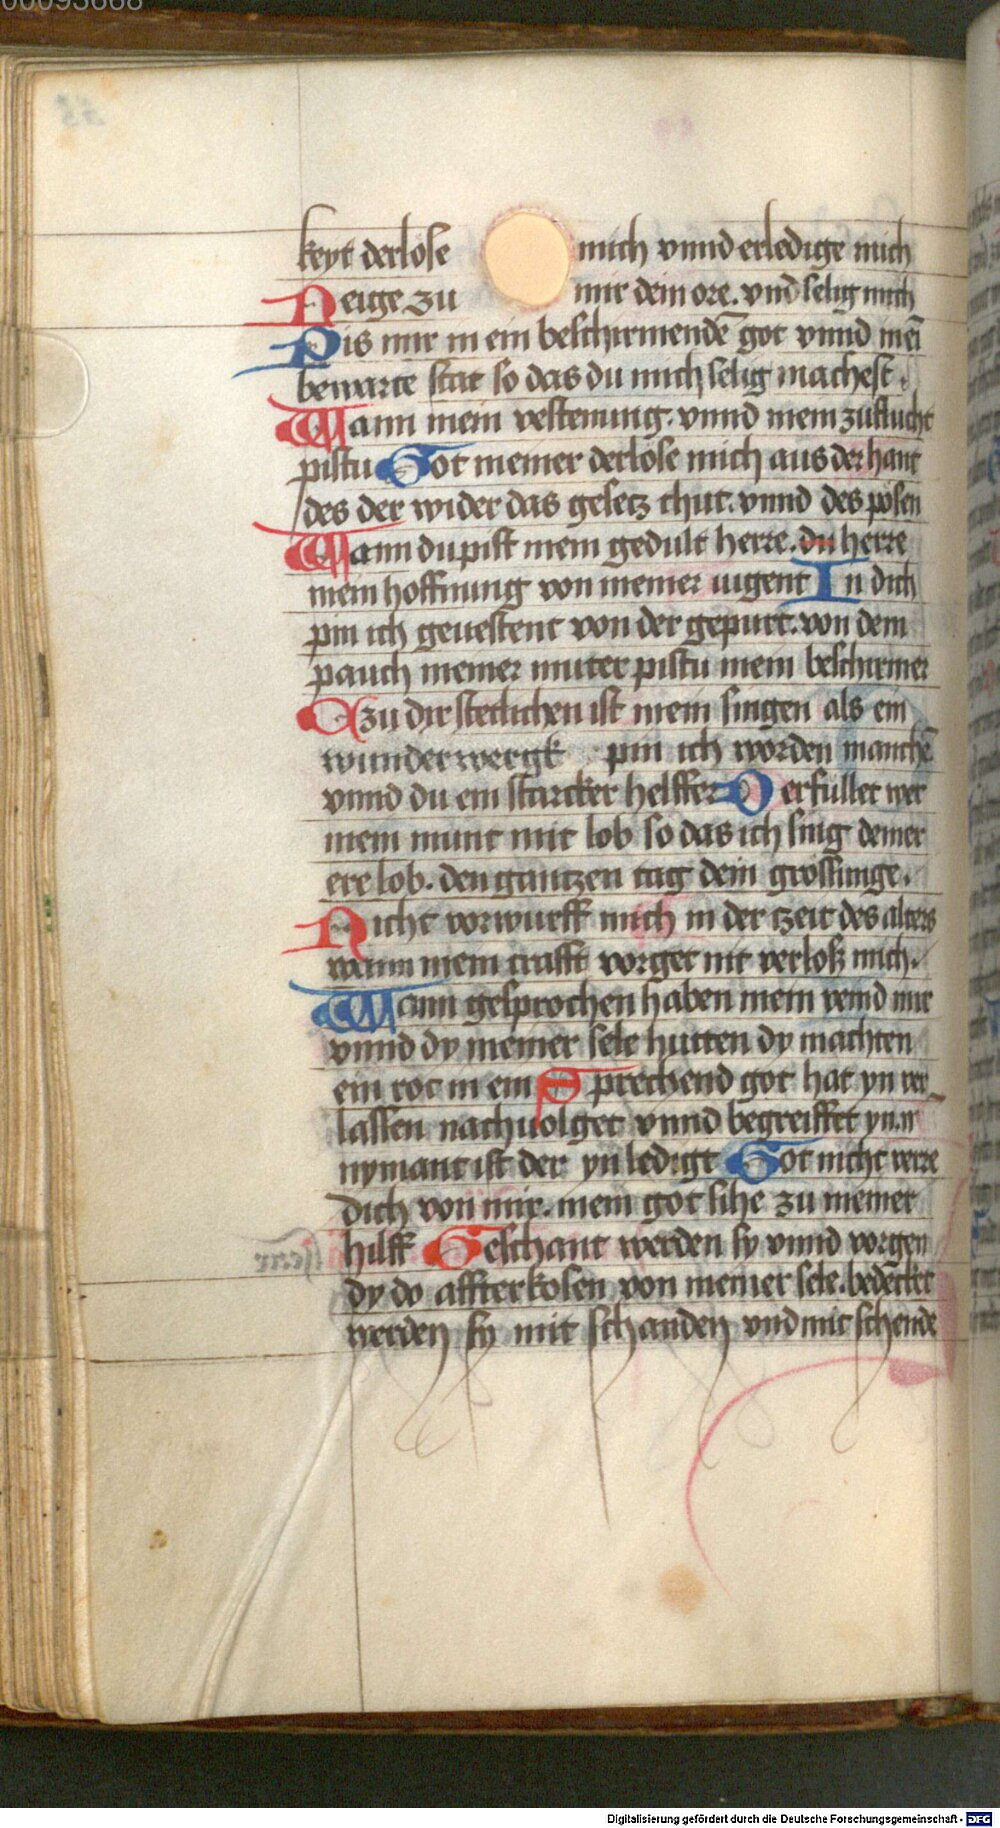 00093668
keyt derlose mich vnnd erledige mich
Neige zu mir dein ore. vnd selig mich
Pis mir in ein beschirmendē got vnnd mei
bewarte stat so das du mich selig machest.
Wann mein vestenung. vnnd mein zuflucht
pistu Got meiner derlose mich aus der hant
des der wider das gesetz thut. vnnd des posen
Wann du pist mein gedult herre. du herre
mein hoffnung von meiner iugent In dich
pin ich geuestent von der gepurt. von dem
pauch meiner muter pistu mein beschirmer
zu dir stetlichen ist mein singen als ein
wunderwergk pin ich worden manchē
vnnd du ein starcker helffer D erfullet wer
mein munt mit lob so das ich sing deiner
ere lob. den gantzen tag dein grossunge.
Nicht vorwurff mich in der tzeit des alters
wann mein crafft vorget nit verloß mich.
Wann gesprochen haben mein veind mir
vnnd dy meiner sele hutten dy machten
ein rot in ein Sprechend got hat yn ver
lassen nachuolget vnnd begreiffet yn. 
nymant ist der yn ledigt Got nicht verre
dich von mir. mein got sihe zu meiner
hilff Geschant werden sy vnnd vorgen
dy do affterkosen von meiner sele. bedēcket
werden sy mit schanden vnd mit schende
Digitalisierung gefördert durch die Deutsche Forschungsgemeinschaft - DFG